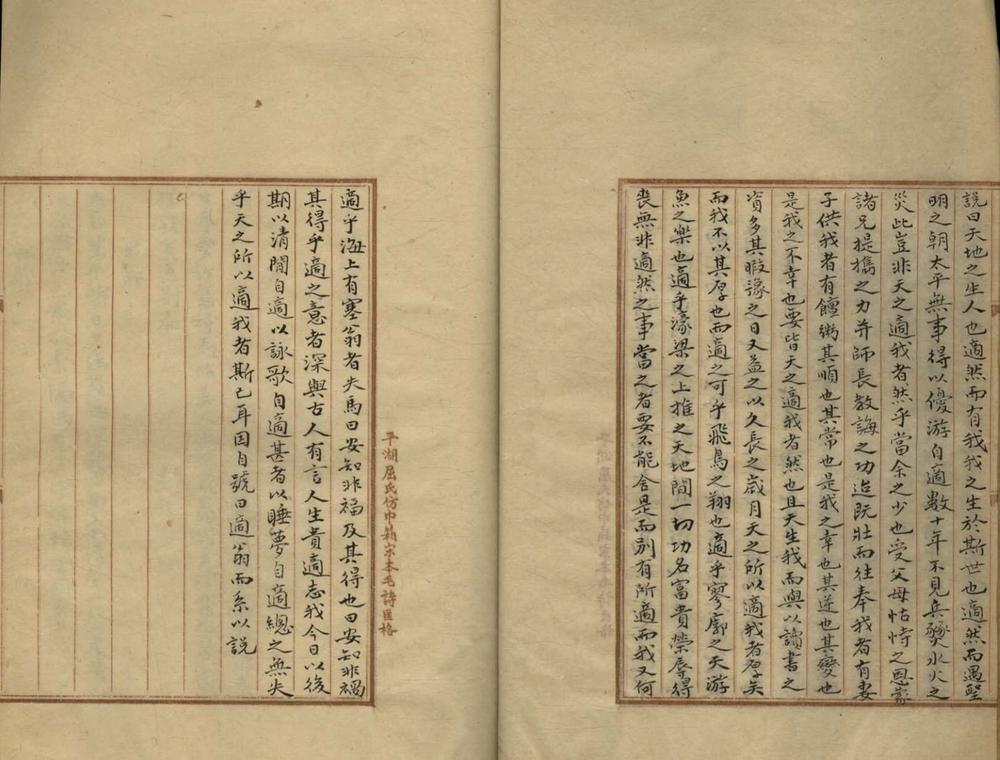 說曰天地之生人也適然而有我我之生於斯世也適然而遇聖
明之朝太平無事得以優游自適數十年不見兵燹水火之
災此豈非天之適我者然乎當余之少也受父母怙恃之恩蒙
諸兄提攜之力并師長教誨之功迨既壯而往奉我者有妻
子供我者有饘粥其順也其常也是我之幸也其逆也其變也
是我之不幸也要皆天之適我者然也且天生我而與以讀書之
資多其暇豫之日又益之以久長之歲月天之所以適我者厚矣
而我不以其厚也而適之可乎飛鳥之翔也適乎寥廓之天游
魚之樂也適乎濠梁之上推之天地間一切功名富貴榮辱得
喪無非適然之事當之者要不能舍是而別有所適而我又何
平湖屈氏仿巾箱宋本毛詩匡格
適乎海上有塞翁者失馬曰安知非福及其得也曰安知非禍
其得乎適之意者深與古人有言人生貴適志我今日以後
期以清閒自適以詠歌自適甚者以睡夢自適總之無失
乎天之所以適我者斯已耳因自號曰適翁而系以說